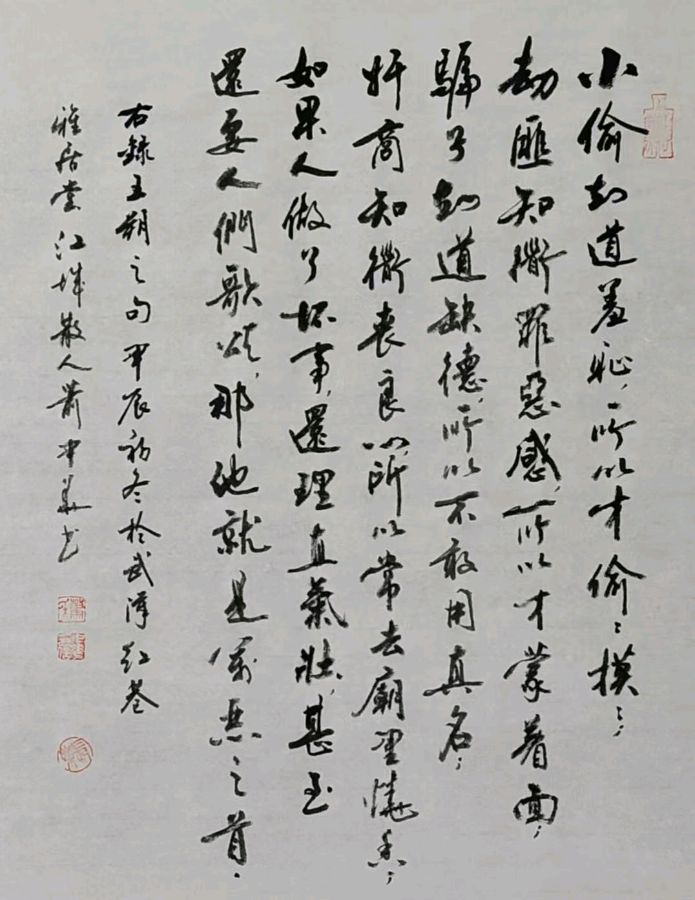 小偷知道羞恥，所以才偷偷摸摸；
劫匪知衜罪惡感，所以才蒙着面；
騙子知道缺德，所以不敢用真名；
奸商知衜喪良心，所以常去廟里燒香；
如果人做了坏事，還理直氣壯，甚至
還要人們歌頌，那他就是萬惡之首。
右錄王朔之句 甲辰初冬於武漢红巷
雅居堂江城散人 华书